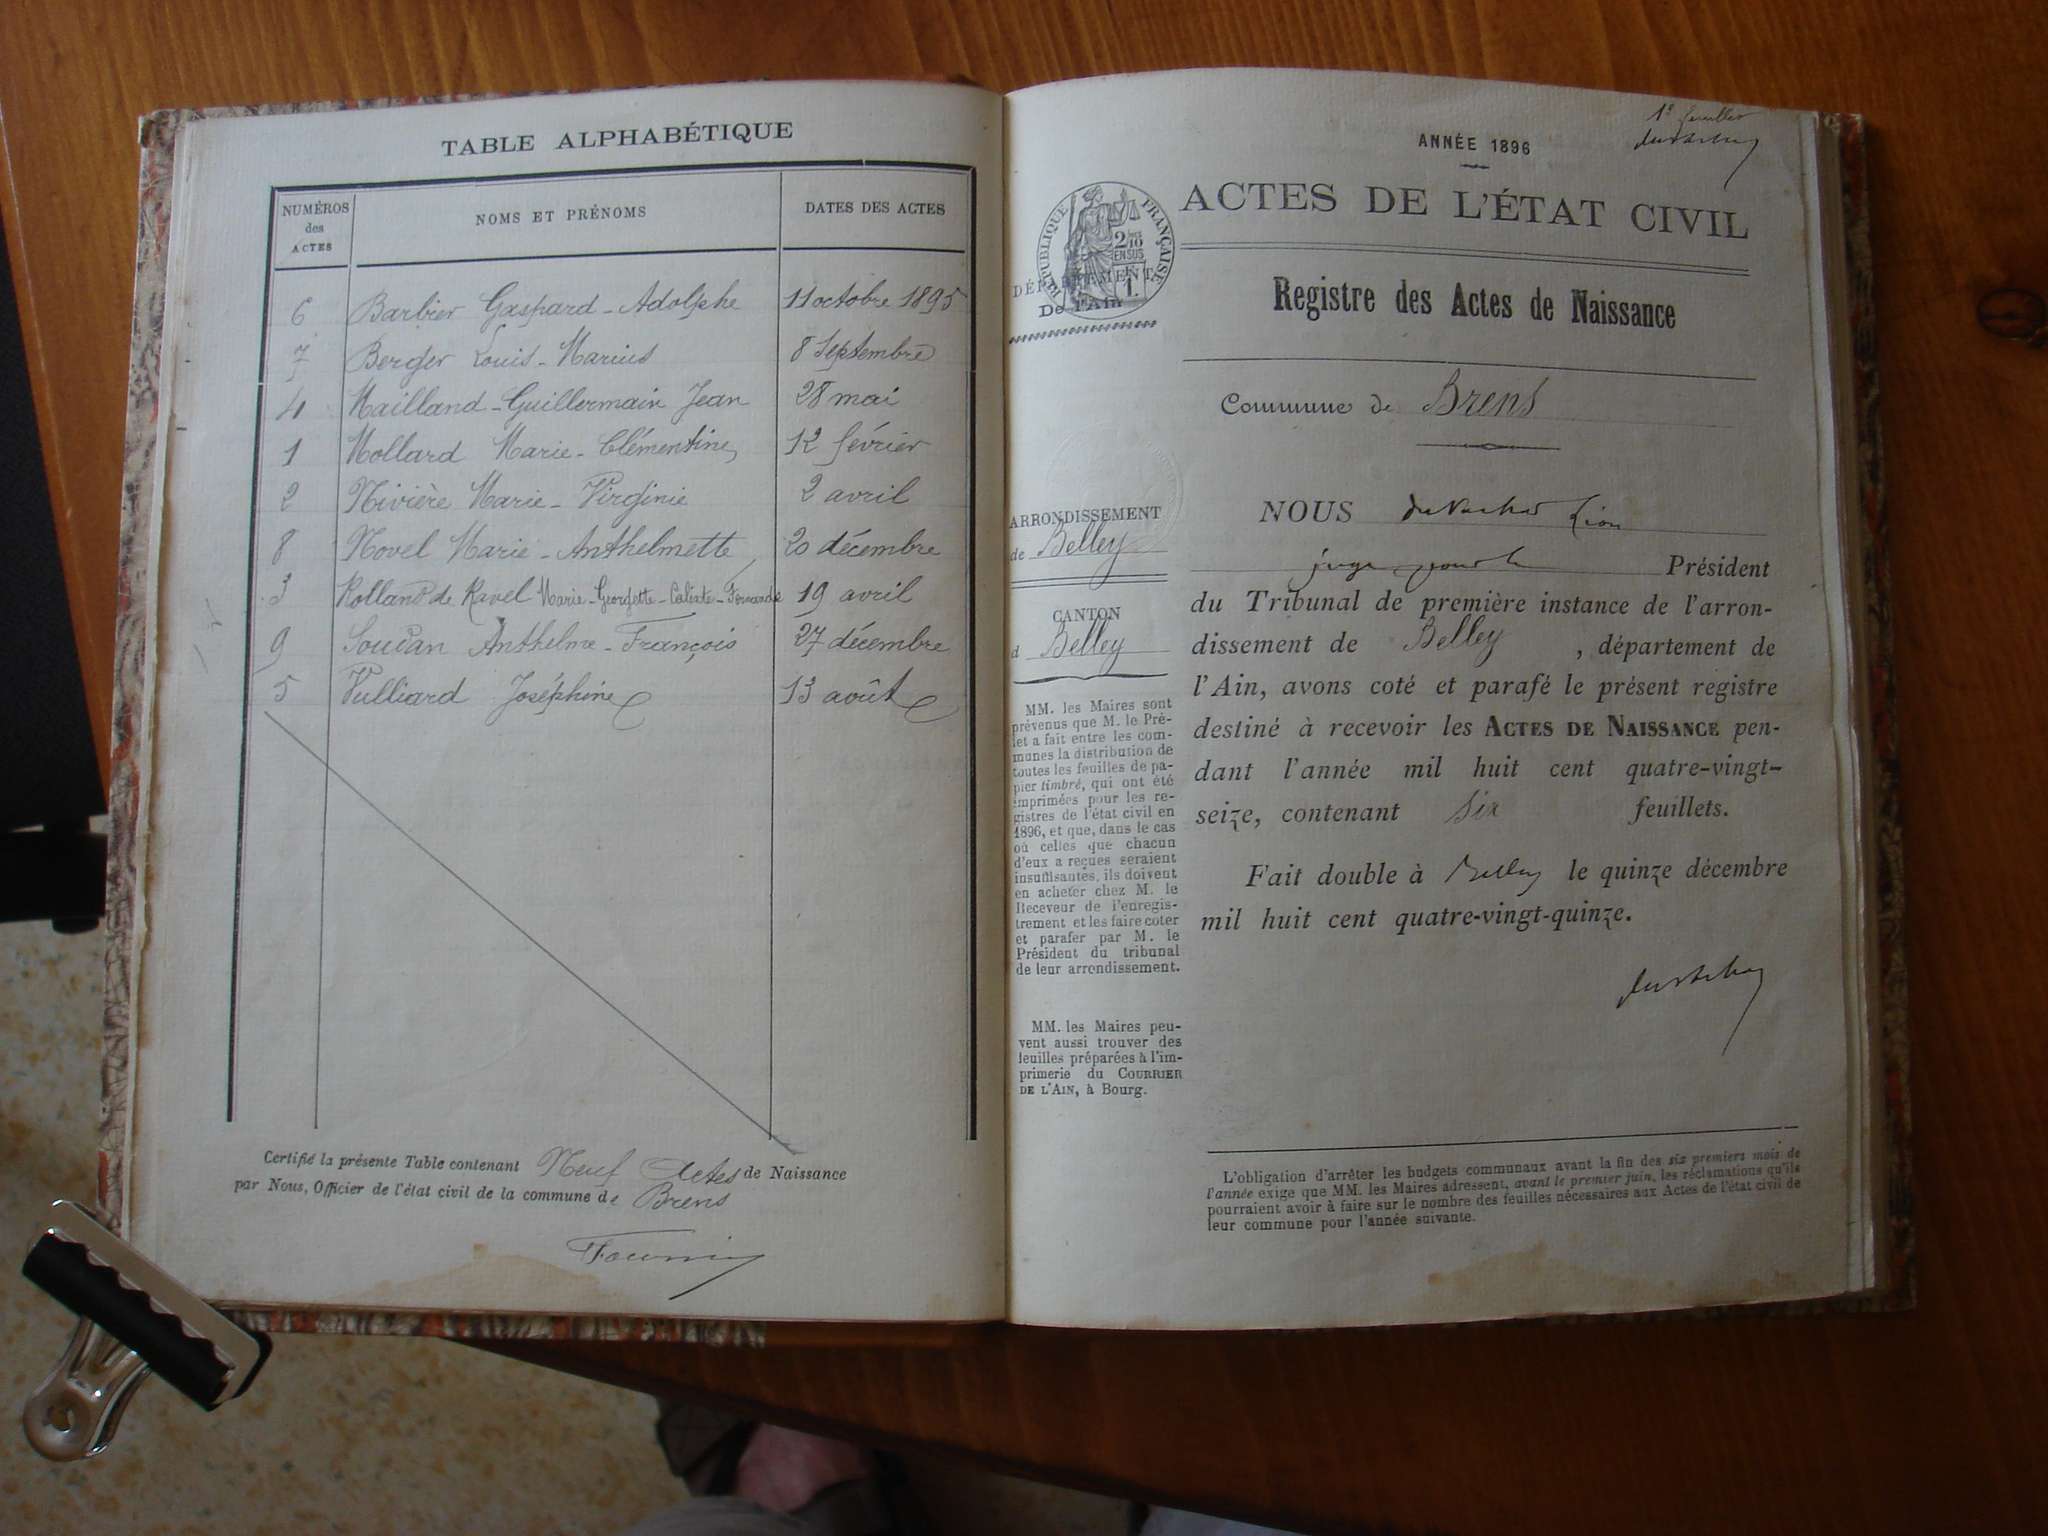 TABLE ALPHABÉTIQUE
NUMÉROS
des
ACTES
NOMS ET PRÉNOMS
DATES DES ACTES
6 Barbier Gaspard-Adolphe 11 octobre 1895
7 Berger Louis-Marius 8 Septembre
4 Mailland-Guillermain Jean 28 mai
1 Mollard Marie-Clémentine 12 février
2 Nivière Marie-Virginie 2 avril
8 Novel Marie-Anthelmette 20 décembre
3 Rolland de Ravel Marie-Georgette-Calixte-Fernande 19 avril
9 Soudan Anthelme-François 27 décembre
5 Vulliard Joséphine 13 août
Certifié la présente Table contenant Neuf Actes de Naissance
par Nous, Officier de l'état civil de la commune de Brens
ANNÉE 1896
ACTES DE L'ÉTAT CIVIL
RÉPUBLIQUE FRANÇAISE
2/10 EN SUS
DÉPARTEMENT
De l'Ain
Registre des Actes de Naissance
Commune de Brens
ARRONDISSEMENT
de Belley
CANTON
d Belley
MM. les Maires sont
prévenus que M. le Pré-
fet a fait entre les com-
munes la distribution de
toutes les feuilles de pa-
pier timbré, qui ont été
imprimées pour les re-
gistres de l'état civil en
1896, et que, dans le cas
où celles que chacun
d'eux a reçues seraient
insuffisantes, ils doivent
en acheter chez M. le
Receveur de l'enregis-
trement et les faire coter
et parafer par M. le
Président du tribunal
de leur arrondissement.
MM. les Maires peu-
vent aussi trouver des
feuilles préparées à l'im-
primerie du COURRIER
DE L'AIN, à Bourg.
NOUS
juge pour le Président
du Tribunal de première instance de l'arron-
dissement de Belley, département de
l'Ain, avons coté et parafé le présent registre
destiné à recevoir les ACTES DE NAISSANCE pen-
dant l'année mil huit cent quatre-vingt-
seize, contenant six feuillets.
Fait double à Belley le quinze décembre
mil huit cent quatre-vingt-quinze.
L'obligation d'arrêter les budgets communaux avant la fin des six premiers mois de
l'année exige que MM. les Maires adressent, avant le premier juin, les réclamations qu'ils
pourraient avoir à faire sur le nombre des feuilles nécessaires aux Actes de l'état civil de
leur commune pour l'année suivante.